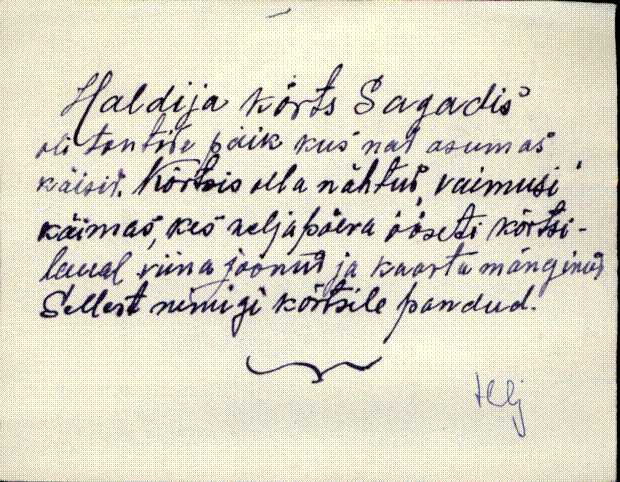 Haldija kõrts Sagadis
oli tontide paik kus nad asumas
käisid. Kõrtsis olla nähtud vaimusi
käimas, kes neljapäeva ööseti kõrtsi-
laual viina joonud ja kaarta mänginud
Sellest nimigi kõrtsile pandud.